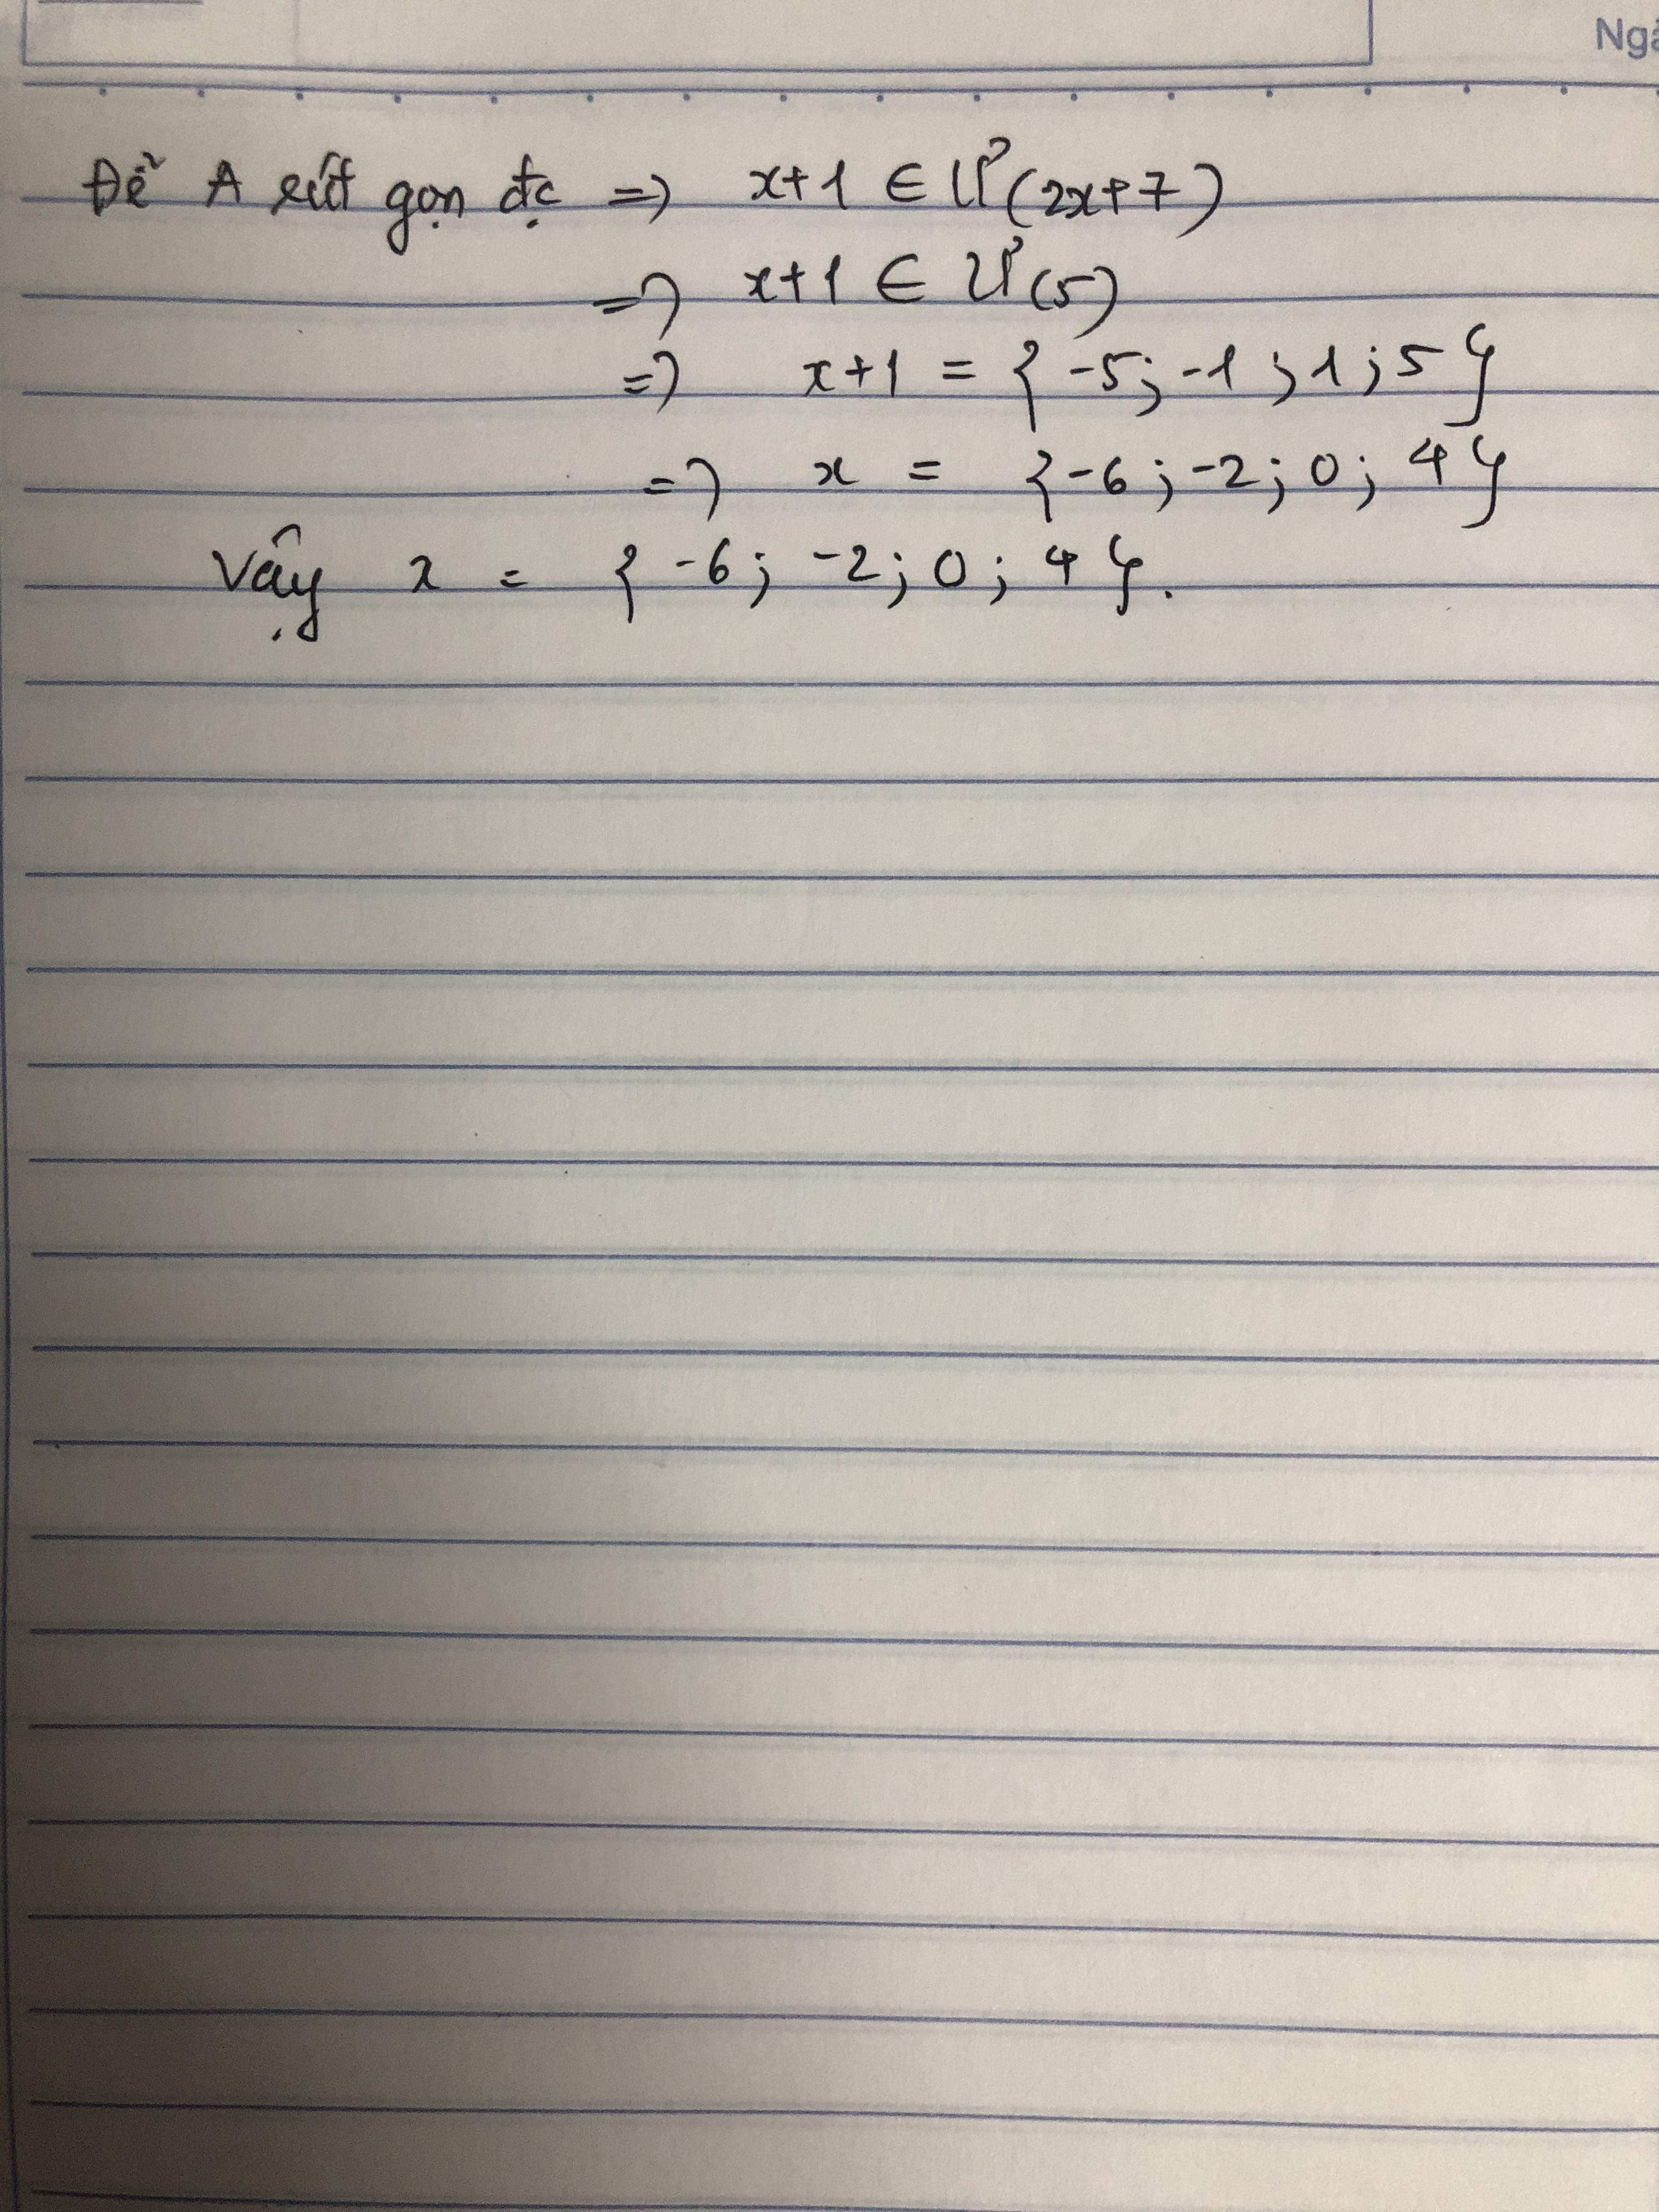 Ngà
Để A rút gọn đc => x+1 ∈ Ư(2x+7)
=> x+1 ∈ Ư(5)
=> x+1 = {-5; -1; 1; 5}
=> x = {-6; -2; 0; 4}
Vậy x = {-6; -2; 0; 4}.